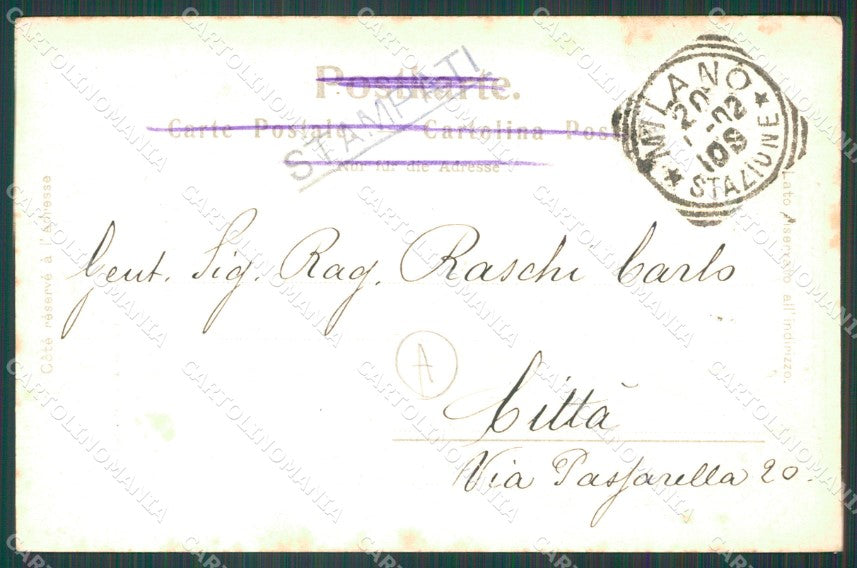 Postkarte.
STAMPATI
Carte Postale. Cartolina Post
Nur für die Adresse
MILANO
20
02
10S
STAZIONE
Côté réservé à l'adresse
Lato riservato all'indirizzo.
Gent. Sig. Rag. Raschi Carlo
A
Città
Via Passarella 20.
CARTOLINOMANIA